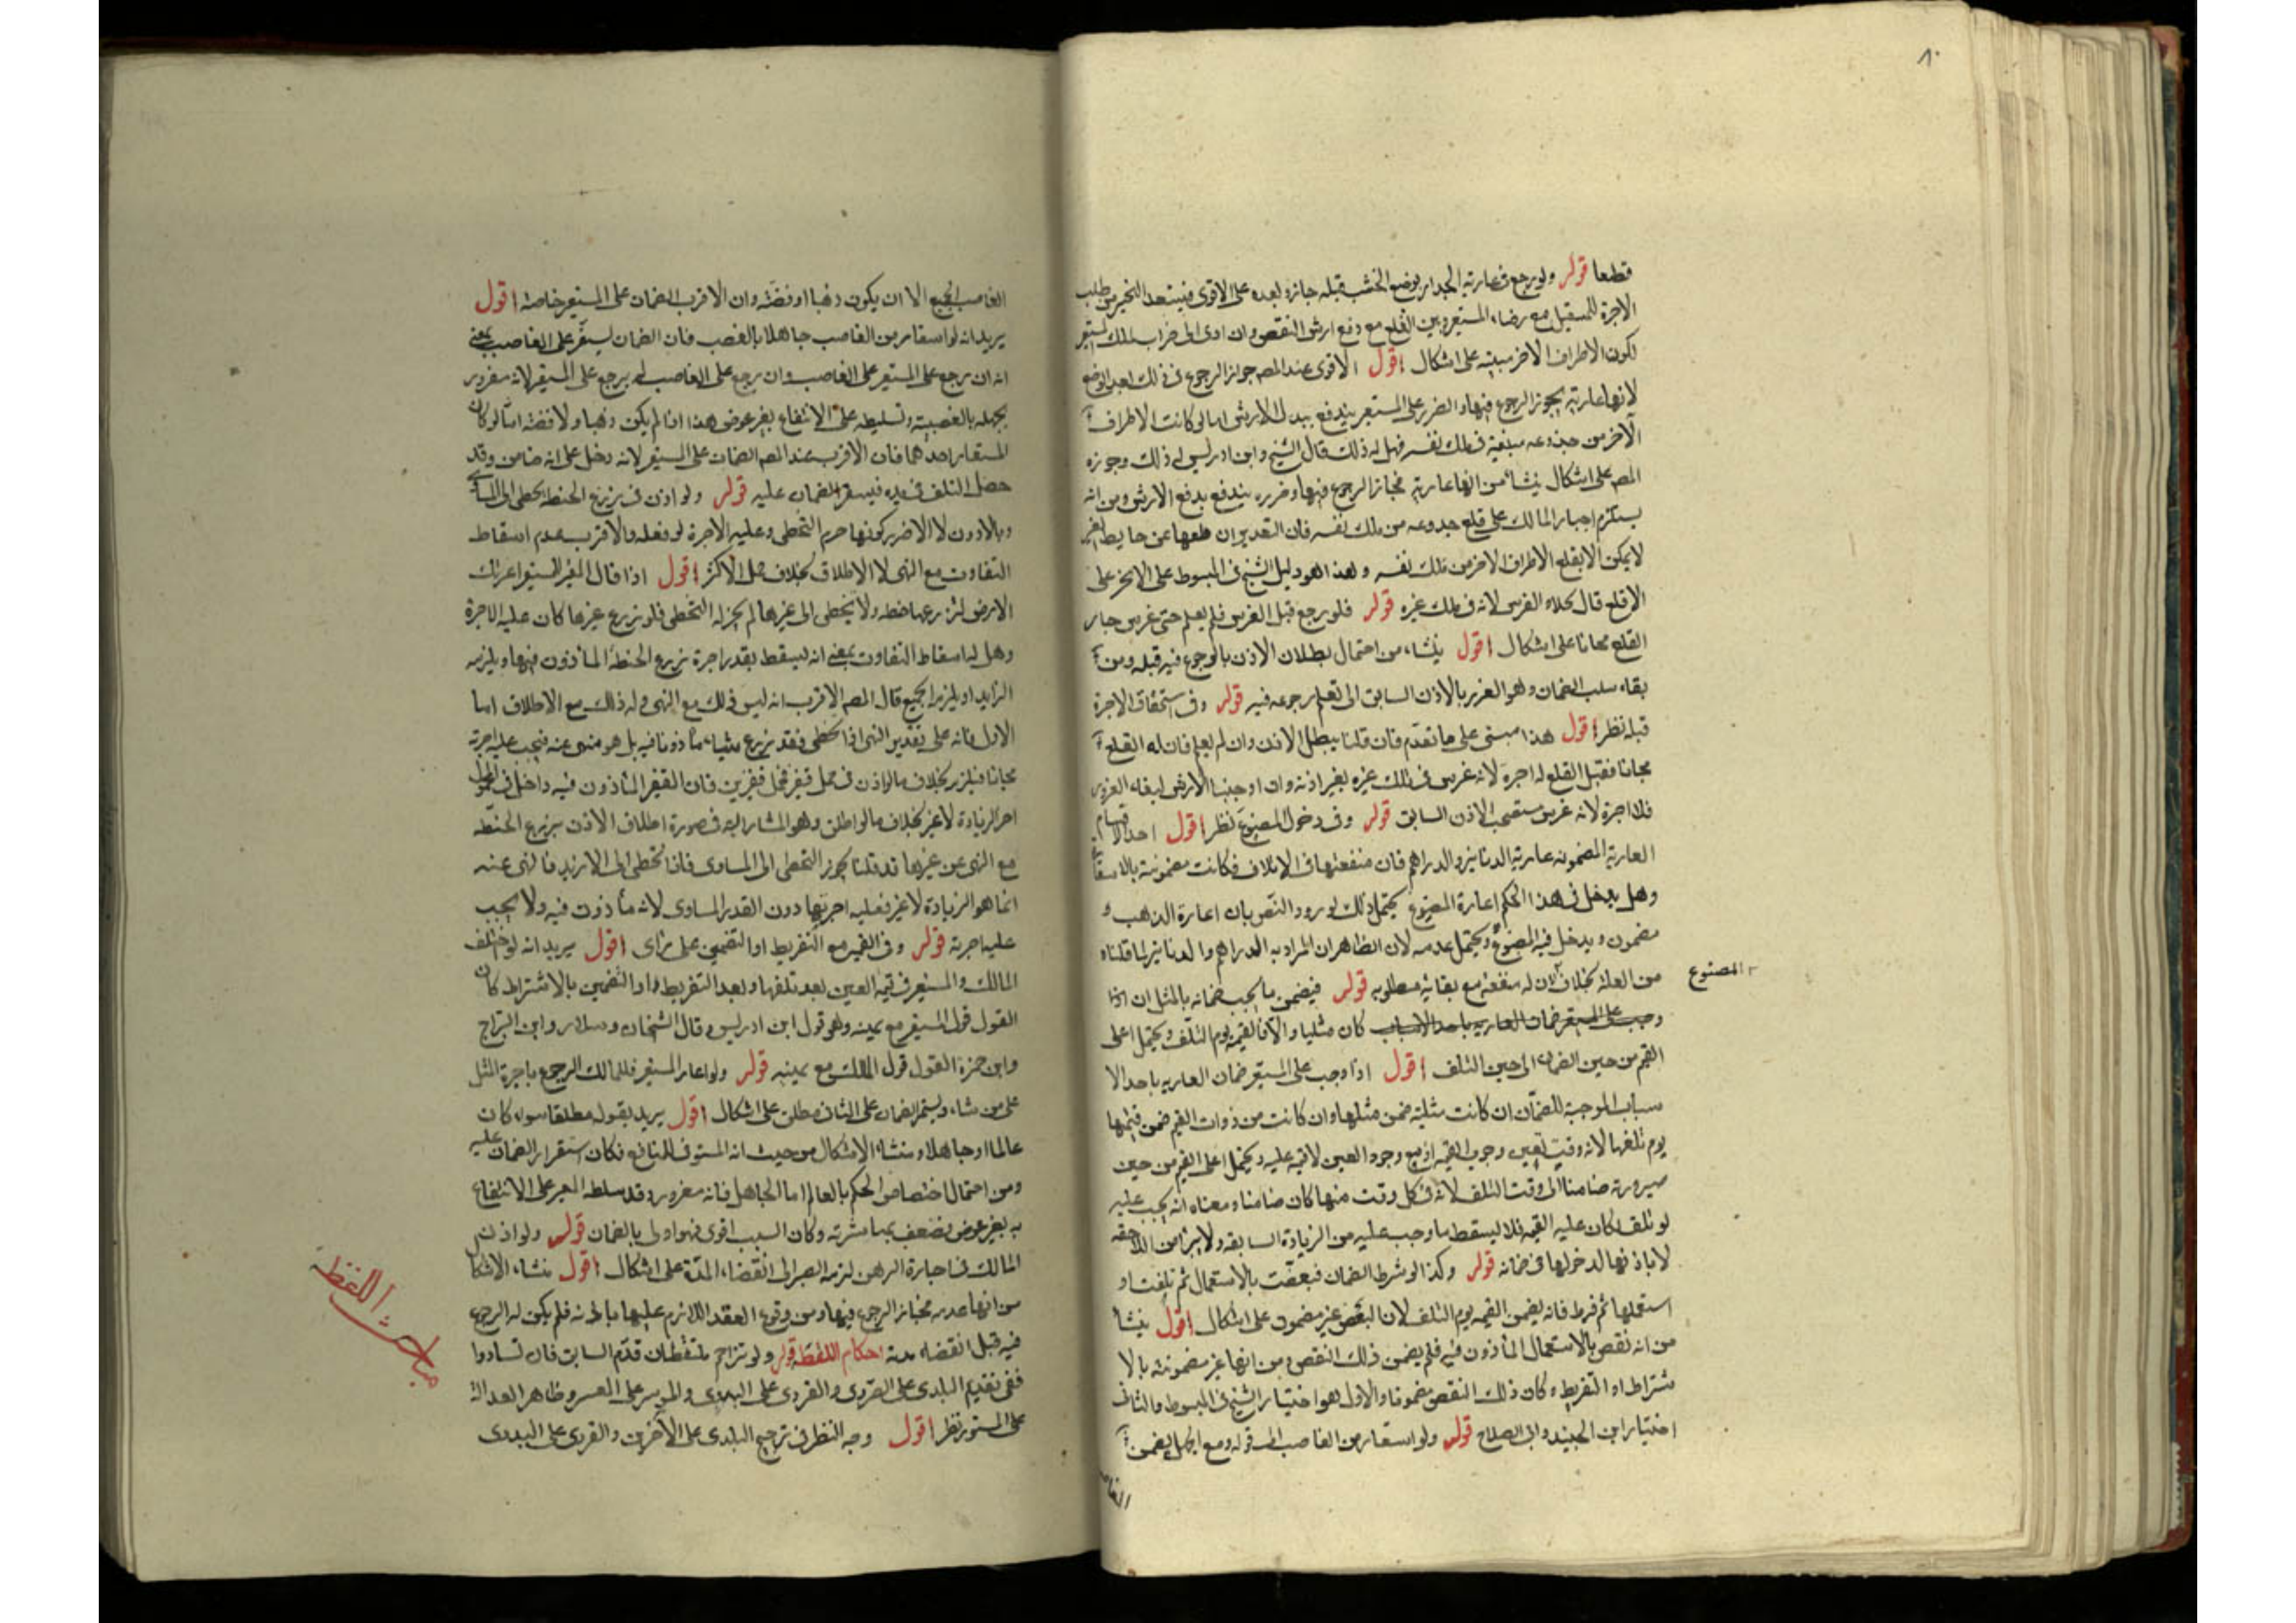 ٨٠
قطعا قوله ولو رجع في عارية الجدار لوضع الخشب قبله جاز وبعده على الاقوى فيستعد التخير من طلب
الاجرة للمستقبل مع رضاء المستعير وبين القلع مع دفع ارش النقص وان ادى الى خراب ملك المستعير
لكون الاطراف الاخر مبنية على اشكال اقول الاقوى عند المصـ جواز الرجوع في ذلك بعد الوضع
لانها عارية يجوز الرجوع فيها والضرر على المستعير يندفع ببدل الارش اما لو كانت الاطراف
الآخر من جذوعه مبنية في ملك نفسه فهل له ذلك قال الشيخ وابن ادريس ليس له ذلك وجوزه
المصـ على اشكال ينشأ من انها عارية فجاز الرجوع فيها وضرره يندفع بدفع الارش ومن انه
يستلزم اجبار المالك على قلع جذوعه من ملك نفسه فان التقدير ان قلعها عن حايط الغير
لا يمكن الا بقلع الاطراف الاخر من ملك نفسه وهذا هو دليل الشيخ في المبسوط على الاخر على
الاقلع قال بخلاف الغرس لانه في ملك غيره قوله فلو رجع قبل الغرس فلم يعلم حتى غرس جاز
القلع مجانا على اشكال اقول ينشاء من احتمال بطلان الاذن بالرجوع فيه قبله ومن
بقاء سلب الضمان وهو الغرر بالاذن السابق الى تعلم رجوعه فيه قوله وفي استحقاق الاجرة
قبله نظر اقول هذا مبنى على ما تقدم فان قلنا يبطل الاذن وان لم يعلم فان له القلع
مجانا فقبل القلع له اجرة لانه غرس في ملك غيره بغير اذنه وان اوجبنا الارش لبقاء الغرور
فلا اجرة لانه غرس مستصحب الاذن السابق قوله وفي دخول المصنوع نظر اقول احد الاقسام
العارية المضمونه عارية الدنانير والدراهم فان منفعتها في الاتلاف فكانت مضمونة بالاستقاع
وهل يدخل في هذا الحكم اعارة المصنوع يحتمل ذلك لورود النص بان اعارة الذهب و
مضمون ويدخل فيه المصنوع ويحتمل عدمه لان الظاهر ان المراد به الدراهم والدنانير لما قلناه
من العلة بخلاف لان له منفعة مع بقائه مطلوبه قوله فيضمن ما يجب ضمانه بالمثل ان اذا
وجب على المستعير ضمان العاريه باحد الاسباب كان مثليا والا فالقيمة يوم التلف ويحتمل اعلى
القيم من حين الضمان الى حين التلف اقول اذا وجب على المستعير ضمان العاريه باحد الا
سباب الموجبة للضمان ان كانت مثلية ضمن مثلها وان كانت من ذوات القيم ضمن قيمتها
يوم تلفها لانه وقت تعين وجوب القيمة اذ مع وجود العين لا قيمة عليه ويحتمل اعلى القيم من حين
صيرورته ضامنا الى وقت التلف لانه في كل وقت منها كان ضامنا ومعناه انه يجب عليه
لو تلف لكان عليه القيمة فلا يسقط ما وجب عليه من الزيادة السابقه ولا يبرأ من اللاحقه
لا باذنها لدخولها في ضمانه قوله وكذا لو شرط الضمان فبعضت بالاستعمال ثم تلفت او
استعملها ثم فرط فانه يضمن القيمة يوم التلف لان البعض غير مضمون على اشكال اقول ينشأ
من انه نقص بالاستعمال المأذون فيه فلم يضمن ذلك النقص ومن انها عين مضمونة بالا
شتراط او التفريط وكان ذلك النقص مضمونا والاول هو اختيار الشيخ في المبسوط والثاني
اختيار ابن الجنيد وابي الصلاح قوله ولو استعار من الغاصب الى قوله ومع الجهل يضمن
الغاصب
المصنوع
الغاصب الجميع الا ان يكون ذهبا او فضة وان الاقرب الضمان على المستعير خاصة اقول
يريد انه لو استعار من الغاصب جاهلا بالغصب فان الضمان ليستقر على الغاصب بمعنى
انه ان رجع على المستعير على الغاصب وان رجع على الغاصب لم يرجع على المستعير لانه مغرور
بجهله بالغصبية وتسليطه على الانتفاع بغير عوض هذا اذا لم يكن ذهبا ولا فضة اما لو كان
المستعار احدهما فان الاقرب عند المصـ الضمان على المستعير لانه دخل على انه ضامن وقد
حصل التلف في يده فيستقر الضمان عليه قوله ولو اذن في زرع الحنطة تخطى الى المساوي
وبالادون لا الاضر كونها حرم التخطى وعليه الاجرة لو فعله والاقرب عدم اسقاط
التفاوت مع النهى لا الاطلاق بخلاف حمل الاكثر اقول اذا قال المعير للمستعير اعرتك
الارض لتزرعها حنطه ولا تتخطى الى غيرها لم يجز له التخطى فلو زرع غيرها كان عليه الاجرة
وهل له اسقاط التفاوت بمعنى انه ليسقط بقدر اجرة زرع الحنطة المأذون فيها ويلزمه
الزايد او يلزم الجميع قال المصـ الاقرب انه ليس ذلك مع النهى وله ذلك مع الاطلاق اما
الاول فانه على تقدير النهى اذا تخطى فقد زرع شيئا ما ذونا فيه بل هو منهى عنه فيجب عليه اجرته
مجانا فيلزم بخلاف ما لو اذن في حمل قفيز فحمل قفيزين فان القفيز المأذون فيه داخل في المحمول
اجر الزيادة لا غير بخلاف ما لو اطلق وهو المشار اليه في صورة اطلاق الاذن بزرع الحنطة
مع النهى عن غيرها قد قلنا يجوز التخطى الى المساوى فاذا تخطى الى الازيد فالنهى عنه
انما هو الزيادة لا غير فعليه اجرتها دون القدر المساوى لانه مأذون فيه ولا يجب
عليه اجرته قوله وفي القيم مع التفريط او التضمين على رأى اقول يريد انه لو اختلف
المالك والمستعير في قيمة العين بعد تلفها وبعد التفريط او التضمين بالاشتراط كان
القول قول المستعير مع يمينه وهو قول ابن ادريس وقال الشيخان وسلار وابن البراج
وابن حمزة القول قول المالك مع يمينه قوله ولو اعار المستعير فللمالك الرجوع باجرة المثل
على من شاء ويستقر الضمان على الثاني مطلق على اشكال اقول يريد بقوله مطلقا سواء كان
عالما او جاهلا ومنشاء الاشكال من حيث انه المستوفى للمنافع فكان استقرار الضمان عليه
ومن احتمال اختصاص الحكم بالعالم اما الجاهل فانه مغرور وقد سلطه المعير على الانتفاع
به بغير عوض فضعف مباشرته وكان السبب اقوى فهو اولى بالضمان قوله ولو اذن
المالك في اجارة الرهن لزمه الصبر الى انقضاء المدة على اشكال اقول منشاء الاشكال
من انها عدمه فجاز الرجوع فيها ومن وقوع العقد اللازم عليها باذنه فلم يكن له الرجوع
فيه قبل انقضاء مدته احكام اللقطة قوله ولو تزاحم ملتقطان قدم السابق فان تساووا
ففى تقديم البلدى على القروى والقروى على البدوى والموسر على المعسر وظاهر العدالة
على المستور نظر اقول وجه النظر في ترجيح البلدى على الآخرين والقروى على البدوى
مباحث اللقطة